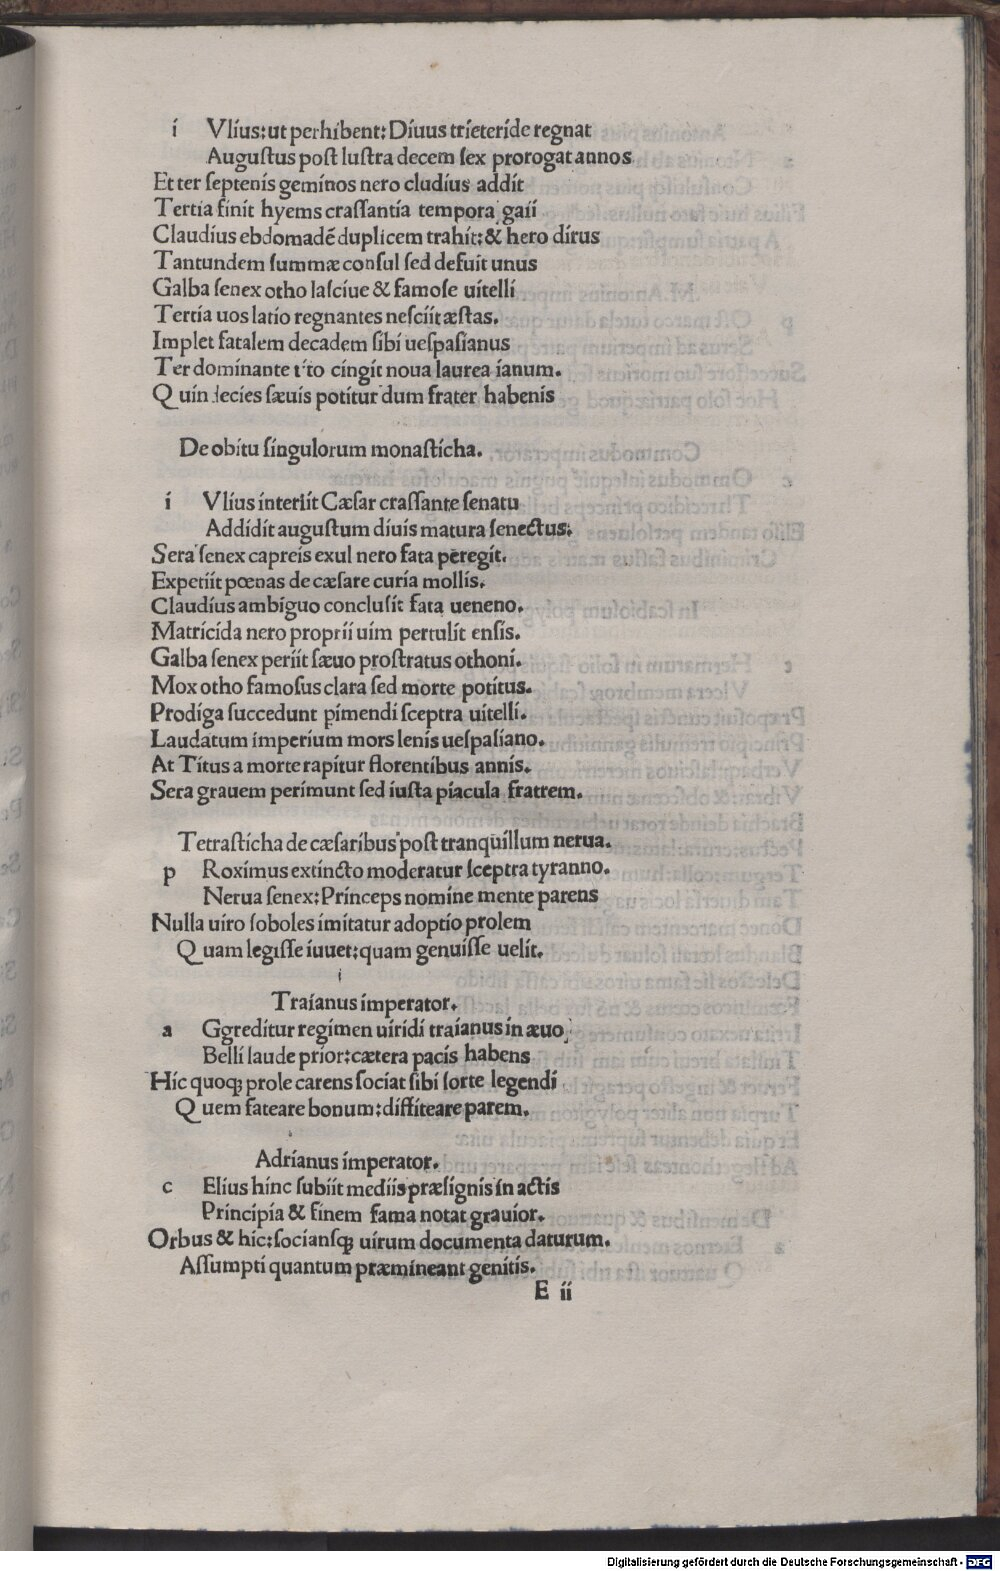 i Vlius:ut perhibent:Diuus trieteride regnat
Augustus post lustra decem sex prorogat annos
Et ter septenis geminos nero cludius addit
Tertia finit hyems crassantia tempora gaii
Claudius ebdomadē duplicem trahit:& hero dirus
Tantundem summæ consul sed defuit unus
Galba senex otho lasciue & famose uitelli
Tertia uos latio regnantes nesciit æstas.
Implet fatalem decadem sibi uespasianus
Ter dominante tito cingit noua laurea ianum.
Quindecies sæuis potitur dum frater habenis
De obitu singulorum monasticha.
i Vlius interiit Cæsar crassante senatu
Addidit augustum diuis matura senectus.
Sera senex capreis exul nero fata peregit.
Expetiit pœnas de cæsare curia mollis.
Claudius ambiguo conclusit fata ueneno.
Matricida nero proprii uim pertulit ensis.
Galba senex periit sæuo prostratus othoni.
Mox otho famosus clara sed morte potitus.
Prodiga succedunt pimendi sceptra uitelli.
Laudatum imperium mors lenis uespasiano.
At Titus a morte rapitur florentibus annis.
Sera grauem perimunt sed iusta piacula fratrem.
Tetrasticha de cæsaribus post tranquillum nerua.
p Roximus extincto moderatur sceptra tyranno.
Nerua senex:Princeps nomine mente parens
Nulla uiro soboles imitatur adoptio prolem
Quam legisse iuuet:quam genuisse uelit.
Traianus imperator.
a Ggreditur regimen uiridi traianus in æuo
Belli laude prior:cætera pacis habens
Hic quoqꝫ prole carens sociat sibi sorte legendi
Quem fateare bonum:diffiteare parem.
Adrianus imperator.
c Elius hinc subiit mediis præsignis in actis
Principia & finem fama notat grauior.
Orbus & hic:sociansqꝫ uirum documenta daturum.
Assumpti quantum præmineant genitis.
E ii
Digitalisierung gefördert durch die Deutsche Forschungsgemeinschaft - DFG